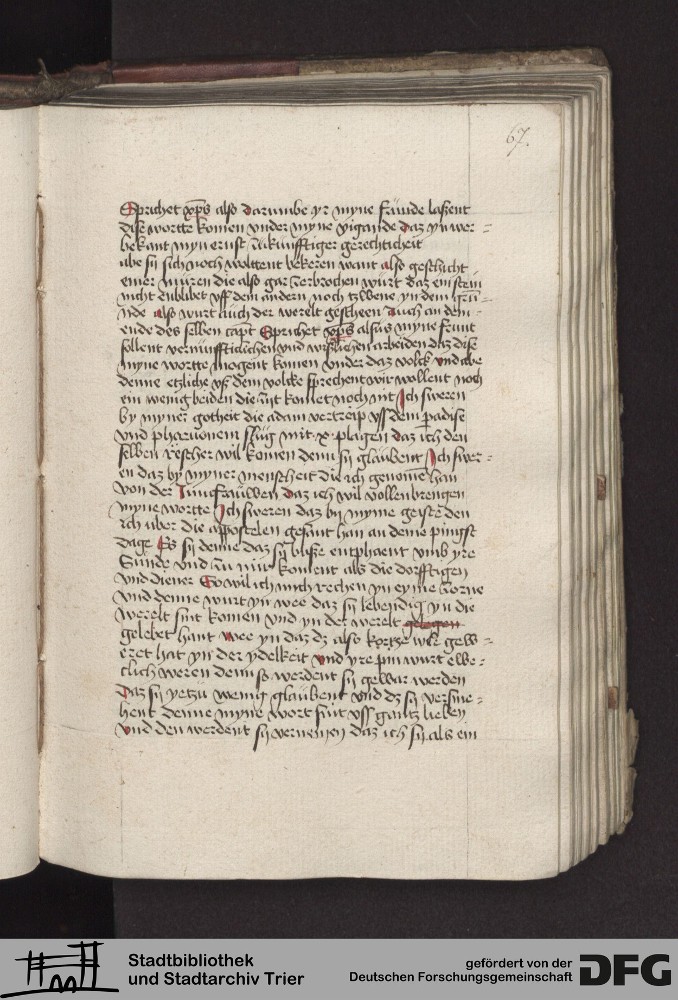 67.
Sprichet xps also darumbe yr myne fründe laßent
dise wortte komen vnder myne vigande daz yn wer-
bekant myn ernst zükünfftiger gerechticheit
abe sy sich noch woltent bekeren want also geschicht
einer müren die also gar zerbrochen würt daz ein stein
nicht enblibet vff dem andern noch tzwene yn dem grü-
nde also wurt auch der werelt gescheen Auch an dem
ende des selben capt Sprichet xps alsus myne frunt
sollent vernünfftichen vnd wißlichen arbeiden daz dise
myne wortte mogent komen vnder daz volck vnd abe
denne etzliche vß dem volcke sprechent wir wollent noch
ein wenig beiden die zijt komet noch nit Ich sweren
by myner gotheit die adam vertreip vss dem padise
vnd pharaonem slüg mit x plagen daz ich den
selben rescher wil komen denn sy glaubent Ich swer-
en daz by myner menscheit die ich genomen han
von der Junnfrauwen daz ich wil vollenbrengen
myne wortte Ich sweren daz by myme geiste den
ich uber die appostelen gesant han an deme pingst
dage Es sy denne daz sy büße entphaent vmb yre
Sünde vnd zu mir koment als die dorfftigen
vnd diener So wil ich mich rechen yn eyme zorne
vnd denne wurt yn wee daz sy lebendig yn die
werelt sint komen vnd yn der werelt gelegen
gelebet hant wee yn daz dz also kortze wile gew-
eret hat yn der ydelkeit vnd yre pin wurt ewe-
clich weren denn so werdent sy gewar werden
Daz sy yetzü wenig glaubent vnd dz sy versme-
hent denne myne wort sint vss gantz lieben
vnd den werdent sy vernemen daz ich sy als ein
Stadtbibliothek
und Stadtarchiv Trier
gefördert von der
Deutschen Forschungsgemeinschaft
DFG